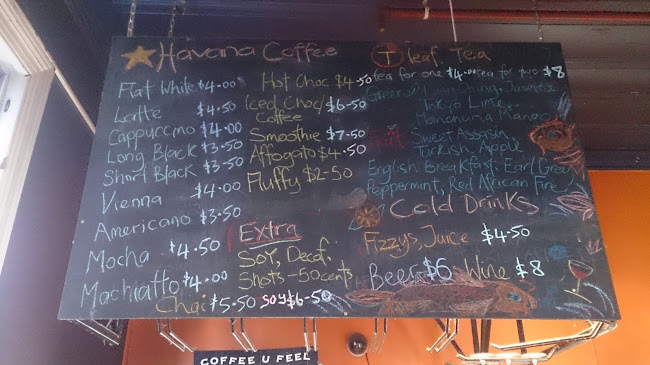 Havana Coffee
Flat White $4.00
Latte $4.50
Cappuccino $4.00
Long Black $3.50
Short Black $3.50
Vienna $4.00
Americano $3.50
Mocha $4.50
Machiatto $4.00
Chai $5.50 soy $6-50
Hot Choc $4.50
Iced Choc/ $6-50
Coffee
Smoothie $7-50
Affogato $4.50
Fluffy $2-50
Extra
Soy, Decaf,
Shots-50cents
T leaf Tea
tea for one $4.00 tea for two $8
Green China, Jasmine
Lime
Manchuria Mango
Fruit Sweet Assasin
Turkish Apple
English Breakfast, Earl Grey
Peppermint, Red African Fire
Cold Drinks
Fizzys, Juice $4.50
Beer $6 Wine $8
COFFEE U FEEL